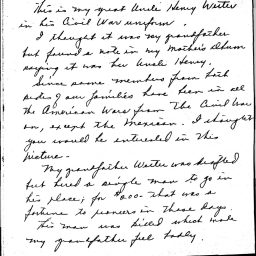 This is my great Uncle Henry Wester
in his Civil War uniform.
I thought it was my grandfather
but found a note in my Mother's Album
saying it was her Uncle Henry.
Since some members from both
sides of our families have been in all
the American Wars from The Civil War
on, except the Mexican. I thought
you would be interested in this
picture.
My grandfather Wester was drafted
but hired a single man to go in
his place; for $ 00.- That was a
fortune to pioneers in those days.
This man was killed which made
my grandfather feel badly.